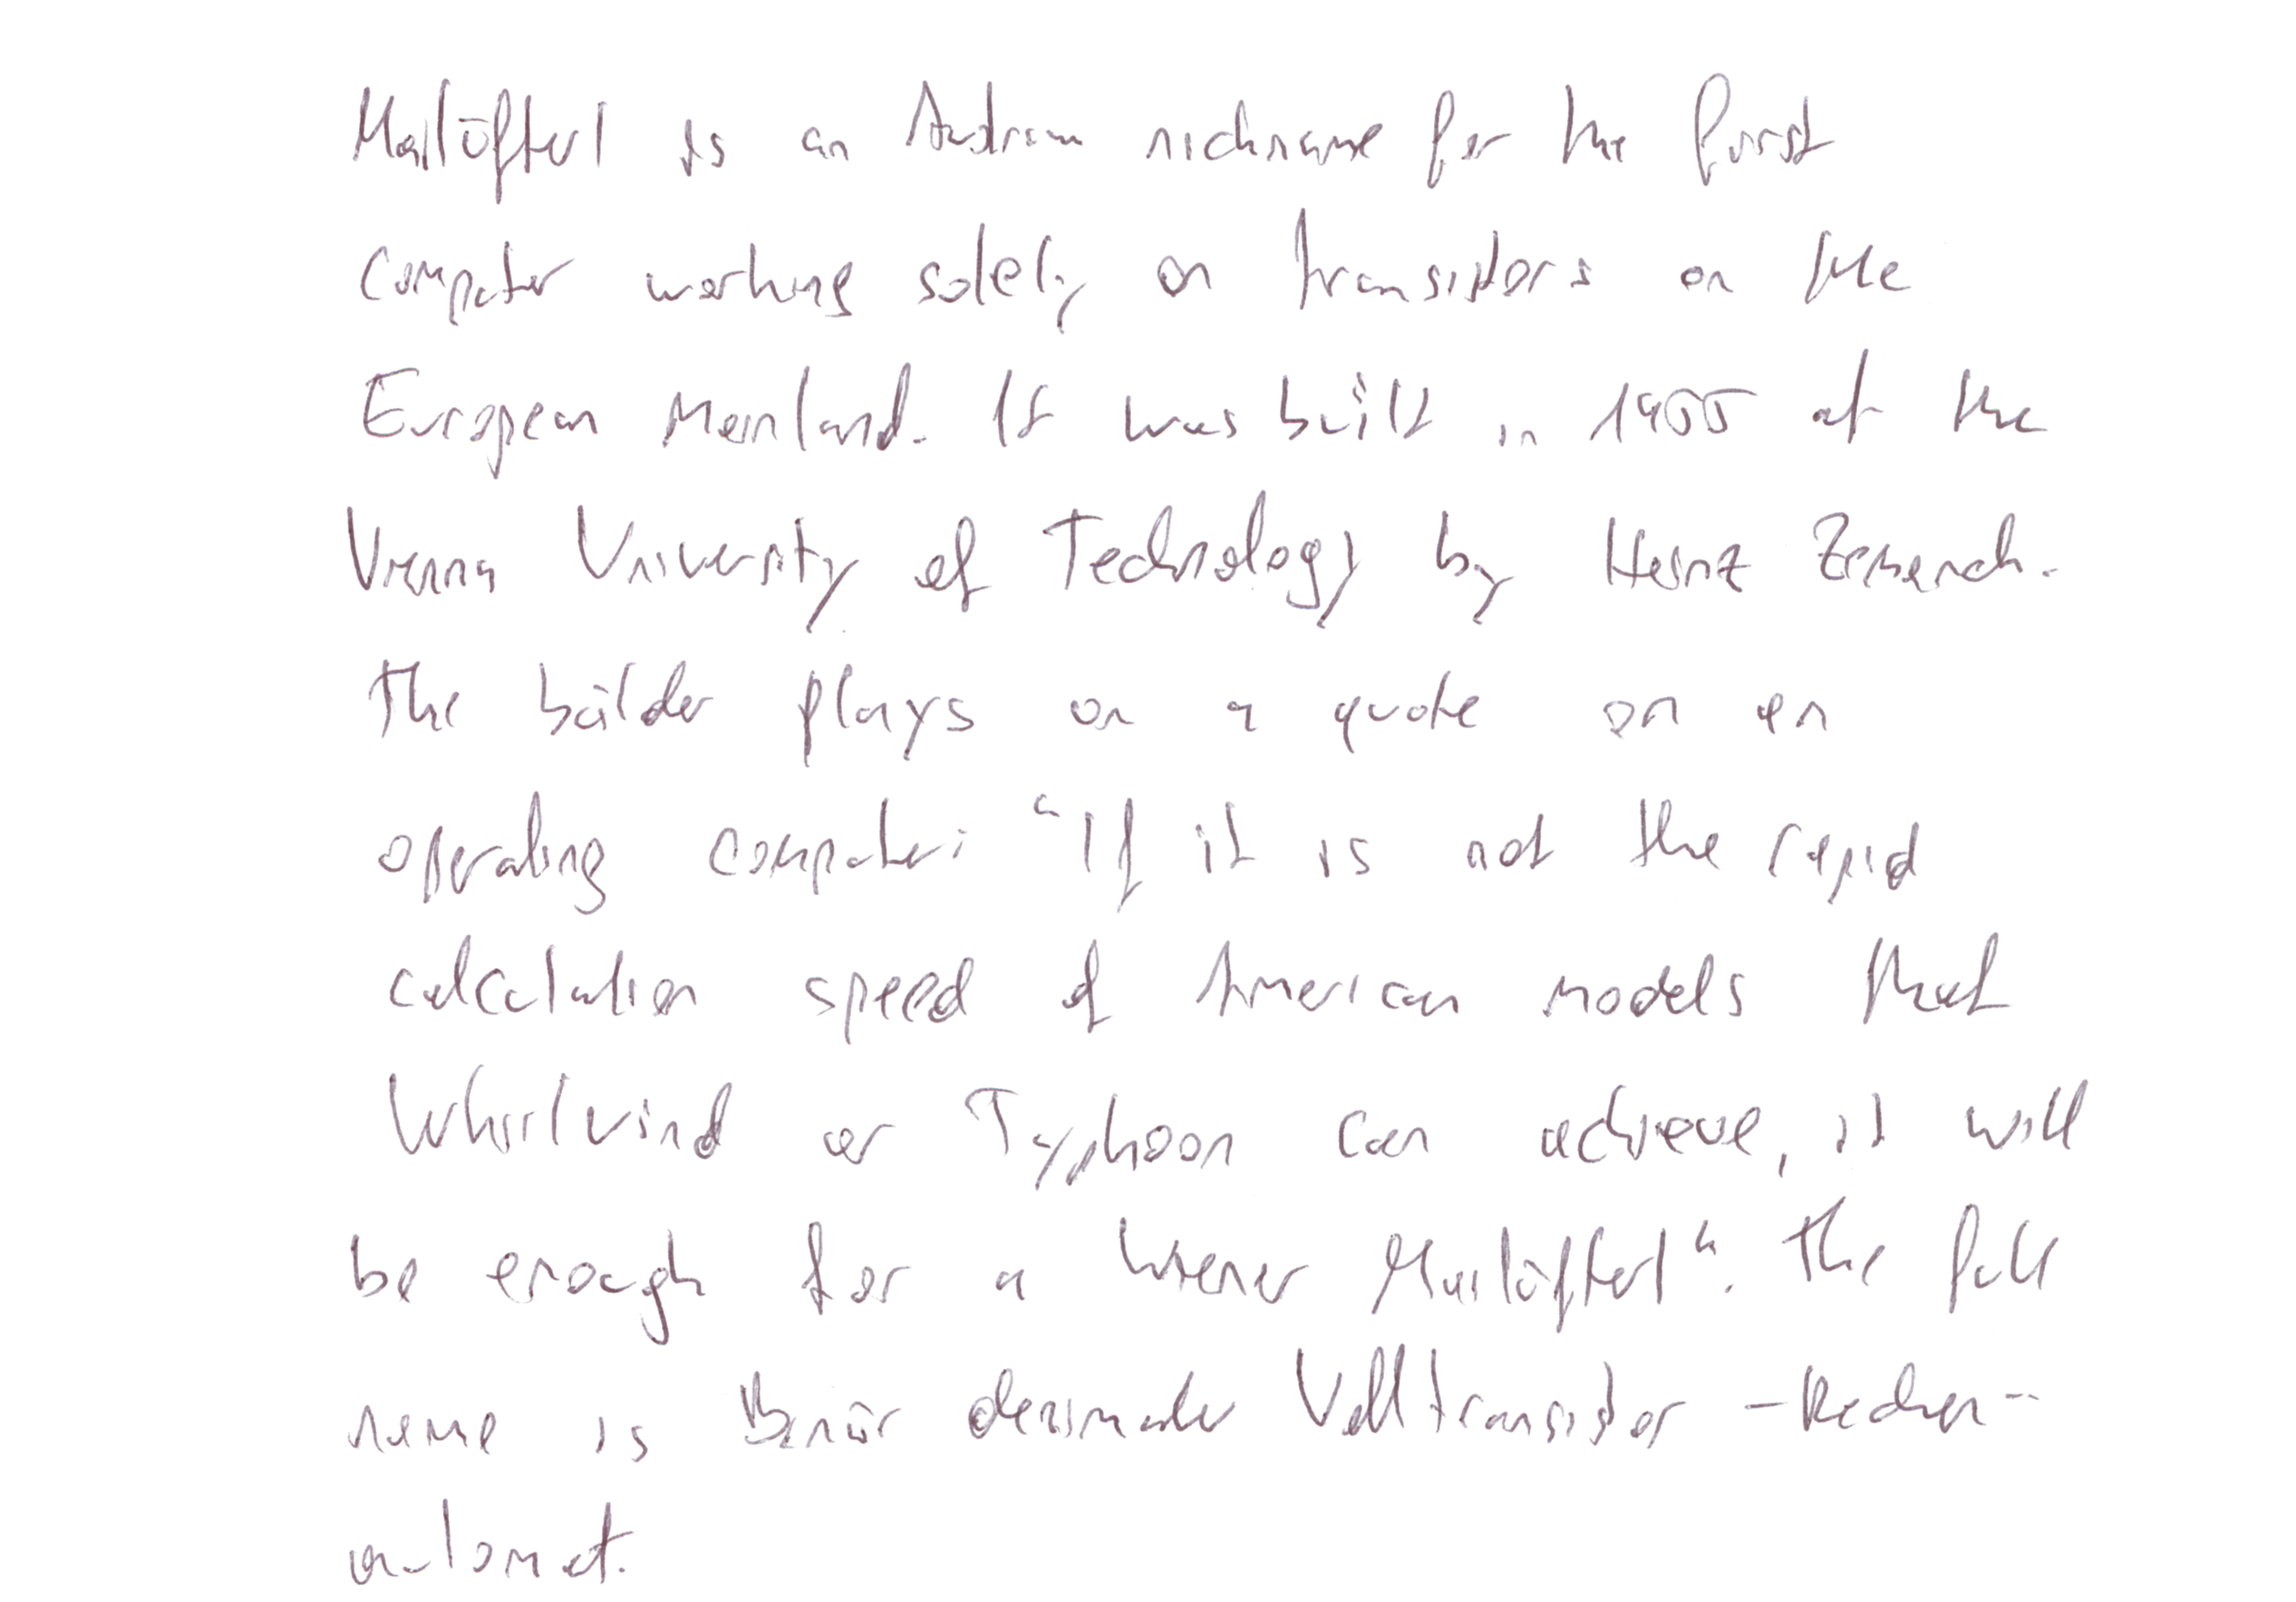 Mailüfterl is an Austrian nickname for the first
computer working solely on transistors on the
European Mainland. It was built in 1955 at the
Vienna University of Technology by Heinz Zemanek.
The builder plays on a quote on an
operating computer: "If it is not the rapid
calculation speed of American models that
Whirlwind or Typhoon can achieve, it will
be enough for a Wiener Mailüfterl". The full
name is Binär dezimaler Volltransistor-Rechen-
automat.